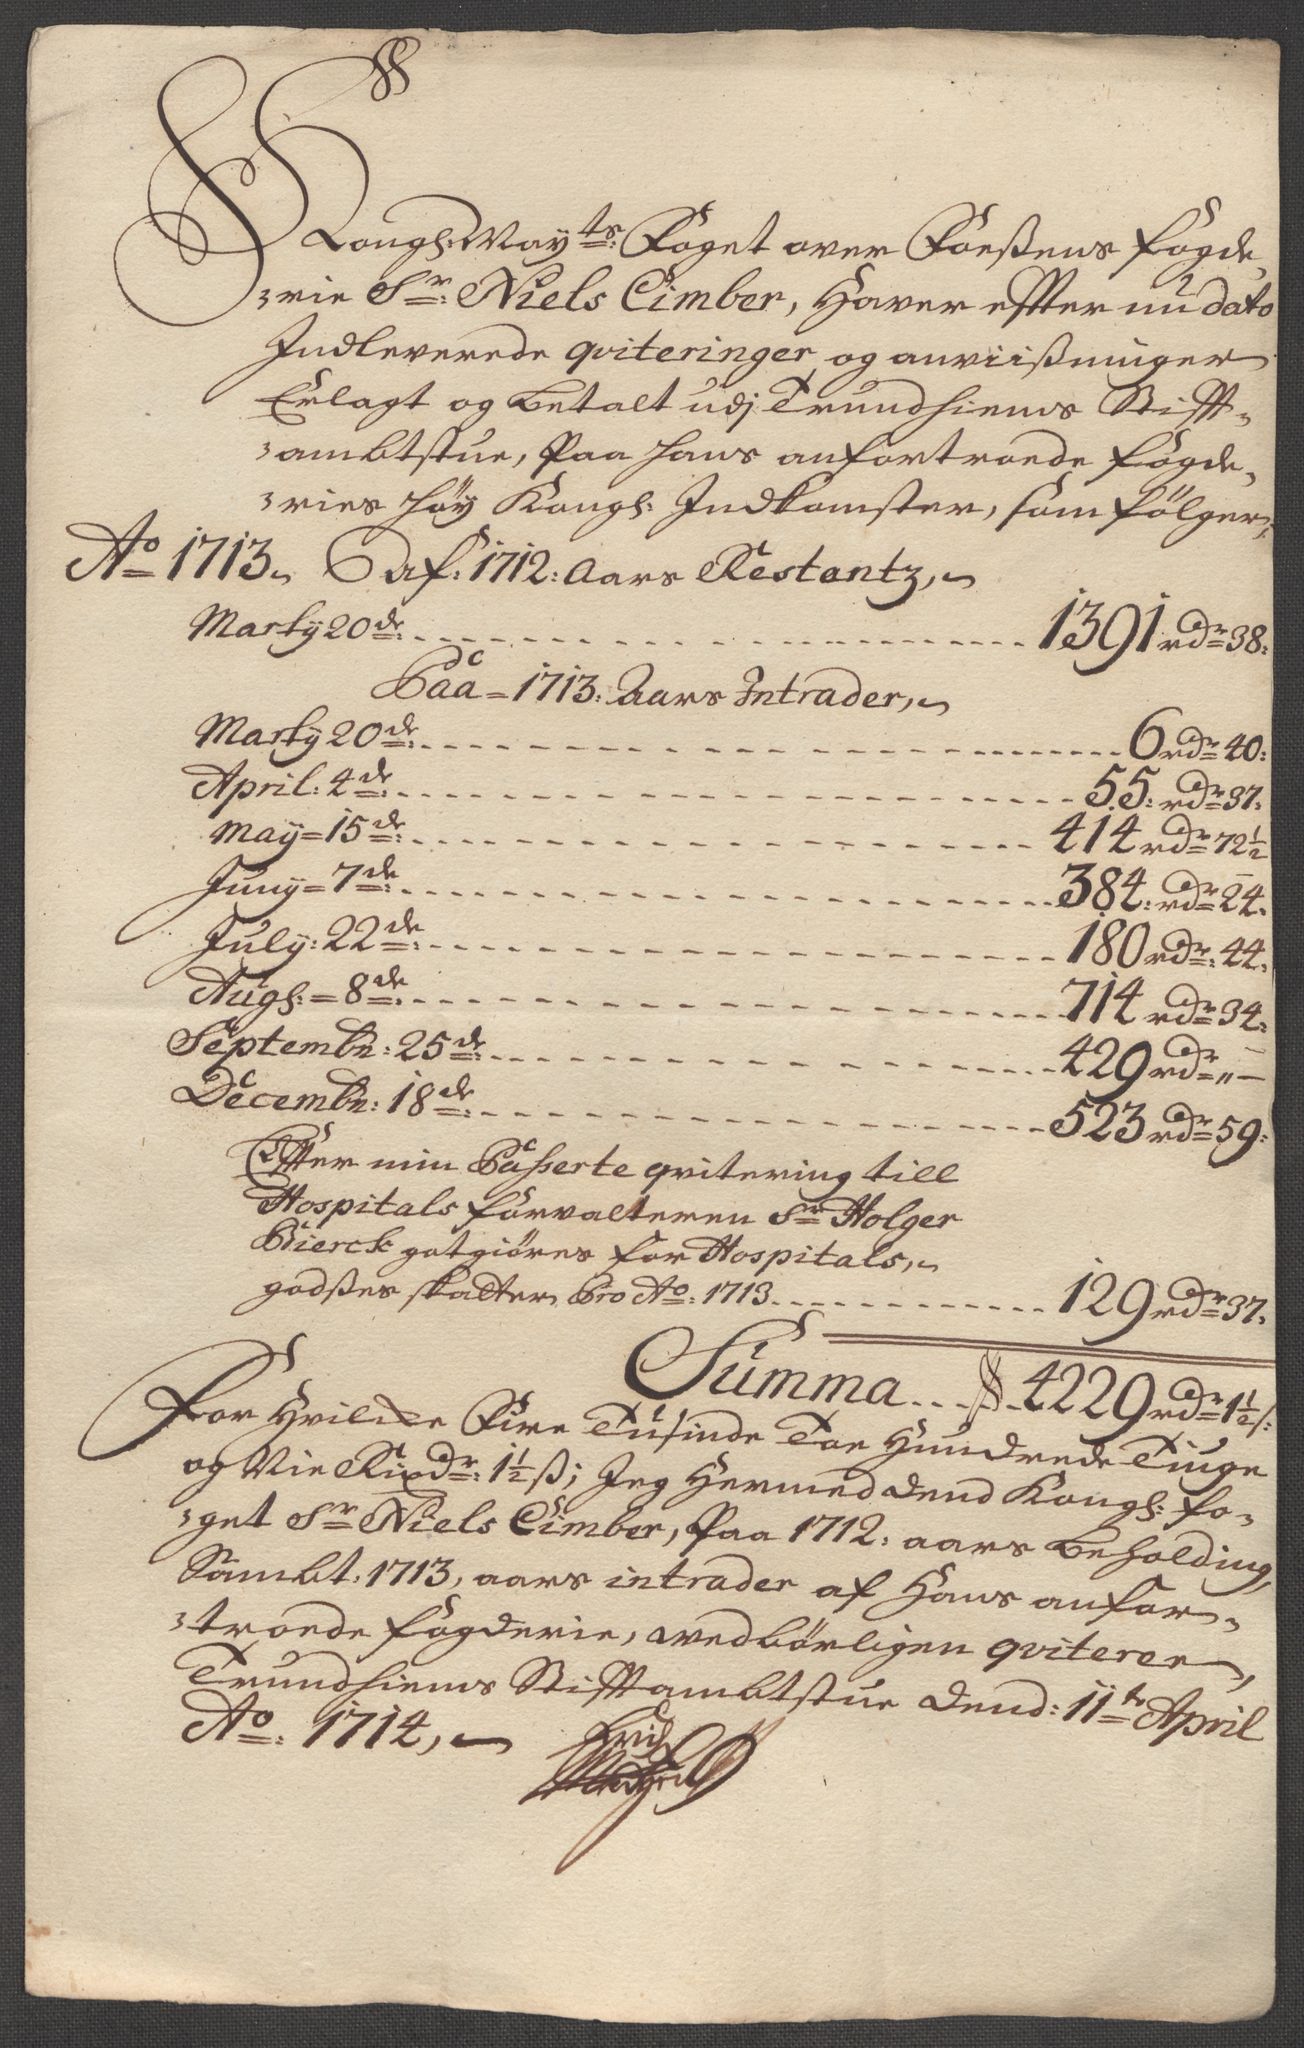 Kongl: May:ts Foget over Foeßens fogde,
-rie Sr: Niels Cimber, Haver effter nu dato
Indleverede qviteringer og anviißninger
Erlagt og betalt udj Trundhiems Stifft-
-ambtstue, Paa hans anfortroede fogde-
-ries höy Kongl: Indkomster, som fölger,
Ao 1713. af: 1712: Aars Restantz,
Marty 20de: 1391 rdr 38:
Paa 1713: Aars Intrader,
Marty 20de: 6 rdr 40:
April: 4de: 55: rdr 37:
May 15de: 414 rdr 72½
Juny 7de: 384: rdr 24.
July: 22de: 180 rdr: 44.
Augs: 8de: 714 rdr 34:
Septembr: 25de: 429 rdr „ —
Decembr: 18de: 523 rdr 59:
Effter min Passerte qvitering till
Hospitals forvalteren Sr Holger
Bierck gotgiöres for Hospitals,
godßes skatter, Pro Ao: 1713 129 rdr 37.
Summa 4229 rdr 1½ s:
For Hvilcke Fire Tusinde Toe Hundrede Tiuge
og Nie Rixdr: 1½ ß; Jeg Hermed dend Kongl: fo-
-get Sr Niels Cimber, Paa 1712: aars beholding,
Sambt: 1713, aars intrader af Hans anfor-
-troede fogderie, vedbörligen qviterer,
Trundhiems Stifftambtstue dend: 11te April
Ao: 1714,